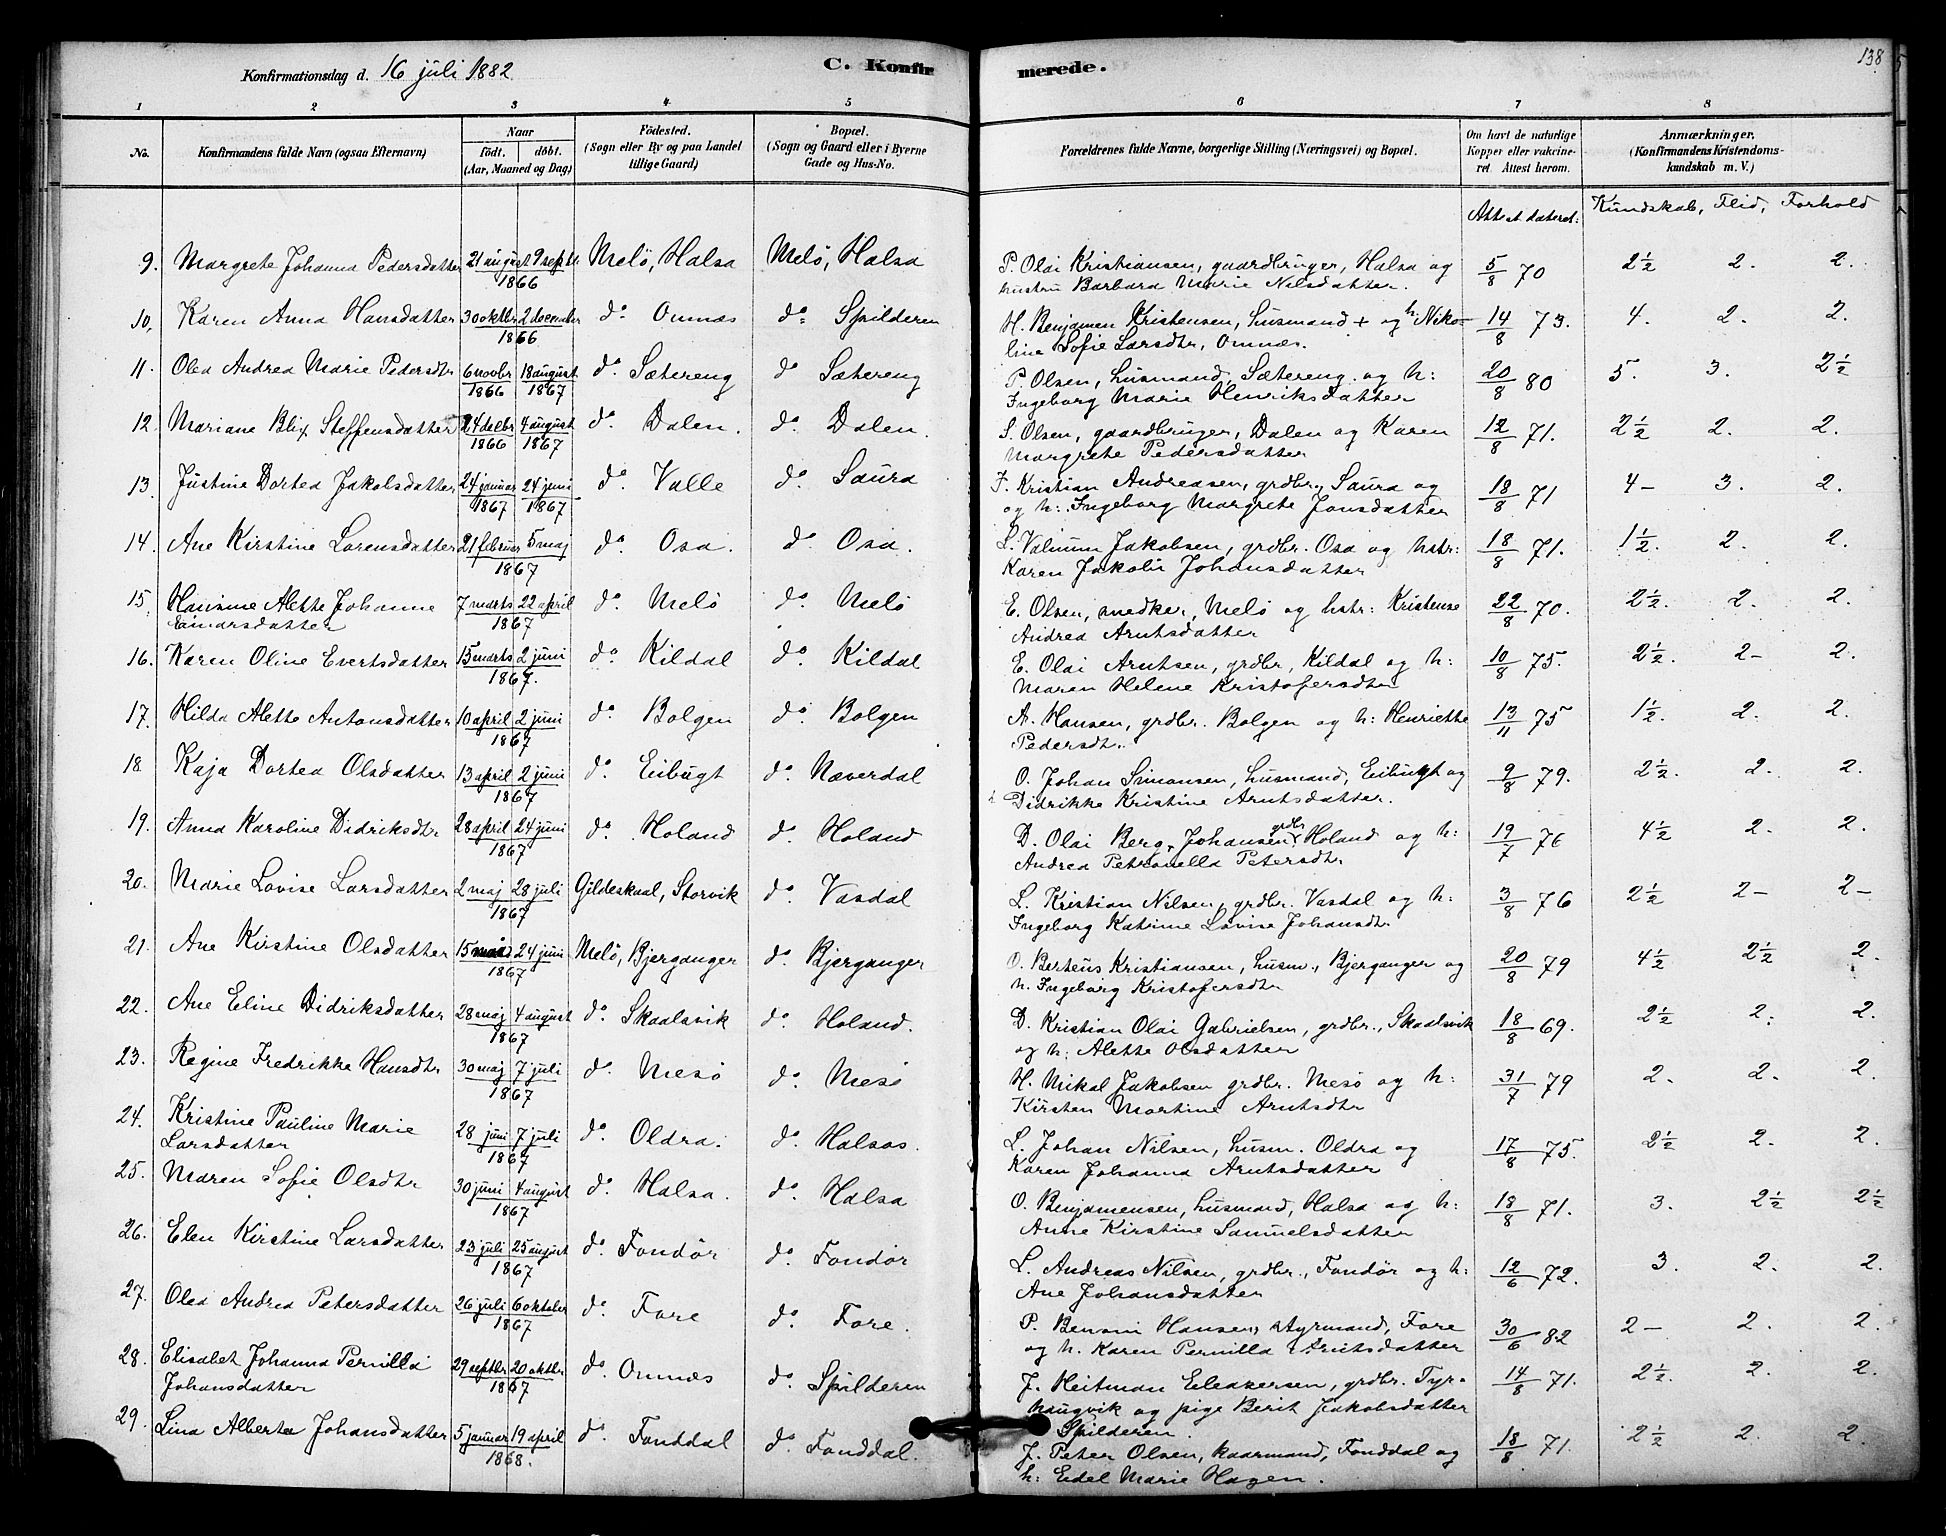 138
Konfirmationsdag d. 16 juli 1882
C. Konfirmerede.
1 2 3 4 5 6 7 8
No.
Konfirmandens fulde Navn (ogsaa Efternavn)
Naar
födt. döbt.
(Aar, Maaned og Dag)
Födested.
(Sogn eller By og paa Landet
tillige Gaard)
Bopæl.
(Sogn og Gaard eller i Byerne
Gade og Hus-No.
Forældrenes fulde Navne, borgerlige Stilling (Næringsvei) og Bopæl.
Om havt de naturlige
Kopper eller vakcine-
ret Attest herom.
Anmærkninger.
(Konfirmandens Kristendoms-
kundskab m. V.)
Attest dateret: Kundskab, Flid, Forhold
9. Margrete Johanna Pedersdatter 21 august 9 septb. 1866 Melö, Halsa Melö, Halsa P. Olai Kristiansen, gaardbruger, Halsa og 5/8 70 2 1/2 2. 2.
hustru Barbara Marie Nilsdatter.
10. Karen Anna Hansdatter 30 oktbr 2 decmaber 1866 do Ornnæs do Spilderen H. Benjamen Kristensen, husmand + og h: Niko- 14/8 73. 4. 2. 2.
line Sofie Larsdtr, Ornnæs.
11. Olea Andrea Marie Pedersdtr 6 novbr 1866 18 august 1867 do Sætereng do Sætereng P. Olsen, husmand, Sætereng og h: 20/8 80 5. 3. 2 1/2
Ingeborg Marie Henriksdatter
12. Mariane Blix Steffensdatter 24 decbr 1866 4 august 1867 do Dalen. do Dalen. S. Olsen, gaardbruger, Dalen og Karen 12/8 71. 2 1/2 2. 2.
Margrete Pedersdatter
13. Justine Dortea Jakobsdatter 24 januar 1867 24 juni 1867 do Valle do Saura J. Kristian Andreasen, grdbr., Saura og 18/8 71 4- 3. 2.
og h: Ingeborg Margrete Jonsdatter
14. Ane Kirstine Lorensdatter 21 februar 5 maj 1867 do Osa. do Osa. L. Valnum Jakobsen, grdbr. Osa og hstr: 18/8 71. 1 1/2. 2. 2.
Karen Jakobi Johansdatter
15. Hansine Alette Johanne 7 marts 22 april 1867 do Melö do Melö E. Olsen, snedker, Melö og hstr: Kristense 22/8 70. 2 1/2. 2. 2.
Einarsdatter Andrea Arntsdatter
16. Karen Oline Evertsdatter 15 marts 2 juni 1867. do Kildal do Kildal E. Olai Arntsen, grdbr, Kildal og h: 10/8 75. 2 1/2. 2- 2.
Maren Helene Kristofersdtr
17. Hilda Alette Antonsdatter 10 april 2 juni 1867 do Bolgen do Bolgen A. Hansen, grdbr. Bolgen og h: Henriette 13/11 75 1 1/2. 2. 2.
Pedersdt.
18 Kaja Dortea Olsdatter 13 april 2 juni 1867 do Eibugt do Næverdal O. Johan Simonsen, husmand, Eibugt og 9/8 79. 2 1/2. 2. 2.
Didrikke Kristine Arntsdatter.
19. Anna Karoline Didriksdtr 28 april 24 juni 1867 do Holand do Holand D. Olai Berg, Johansen grdbr Holand og h: 19/7 76 4 1/2 2. 2.
Andrea Petronella Petersdtr
20. Marie Lovise Larsdatter 2 maj 28 juli 1867 Gildeskaal, Storvik do Vasdal L. Kristian Nilsen, grdbr. Vasdal og h: 3/8 76 2 1/2 2- 2-
Ingeborg Katrine Lovise Johansdtr
21. Ane Kirstine Olsdatter 15 24 juni 1867 Melö, Bjerganger do Bjerganger O. Berteus Kristiansen, husm., Bjerganger og 20/8 79 4 1/2 2 1/2 2.
h. Ingeborg Kristofersdtr
22. Ane Eline Didriksdatter 28 maj 4 august 1867 do Skaalsvik do Holand. D. Kristian Olai Gabrielsen, grdbr., Skaalsvik 18/8 69. 2 1/2 2. 2.
og h: Alette Olsdatter
23. Regine Fredrikke Hansdtr 30 maj 7 juli 1867 do Mesö do Mesö H. Mikal Jakobsen grdbr. Mesö og h: 31/7 79 2. 2. 2.
Kirsten Martine Arntsdtr
24. Kristine Pauline Marie 28 juni 7 juli 1867 do Oldra. do Halsos. L. Johan Nilsen, husm. Oldra og 17/8 75. 2 1/2 2. 2.
Larsdatter Karen Johanna Arntsdatter
25. Maren Sofie Olsdtr 30 juni 4 august 1867 do Halsa. do Halsa O. Benjamensen, husmand, Halsa og h: 18/8 71. 3. 2 1/2 2 1/2
Anne Kirstine Samuelsdatter
26. Elen Kirstine Larsdatter 23 juli 25 august 1867 do Fondör do Fondör L. Andreas Nilsen, grdbr., Fondör og h: 12/6 72. 3. 2. 2.
Ane Johansdatter
27. Olea Andrea Petersdatter 26 juli 6 oktober 1867 do Fore do Fore. P. Benoni Hansen, styrmand, Fore 30/6 82 2- 2. 2.
og h. Karen Pernilla Arntsdatter
28. Elisabet Johanna Pernilla 29 septbr 20 oktbr 1867 do Ornnæs do Spilderen J. Heitman Eleasersen, grdbr. Tyr- 14/8 71. 2 1/2. 2. 2.
Johansdatter haugvik og pige Berit Jakobsdatter
Spilderen.
29. Lina Alberta Johansdatter 5 januar 19 april 1868. do Fonddal do Fonddal. J. Peter Olsen, kaarmand, Fonddal og 18/8 71. 2 1/2 2. 2.
h: Edel Marie Hagen.